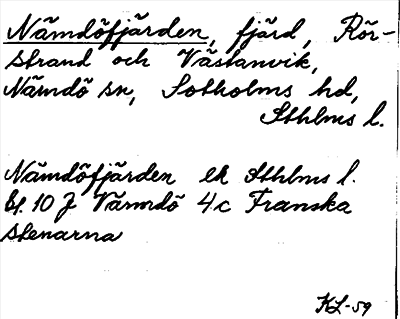 Nämdöfjärden, fjärd, Rör-
strand och Västanvik,
Nämdö sn, Sotholms hd,
Sthlms l.
Nämdöfjärden ek Sthlms l.
bl. 10 J Värmdö 4c Franska
stenarna
KL-59